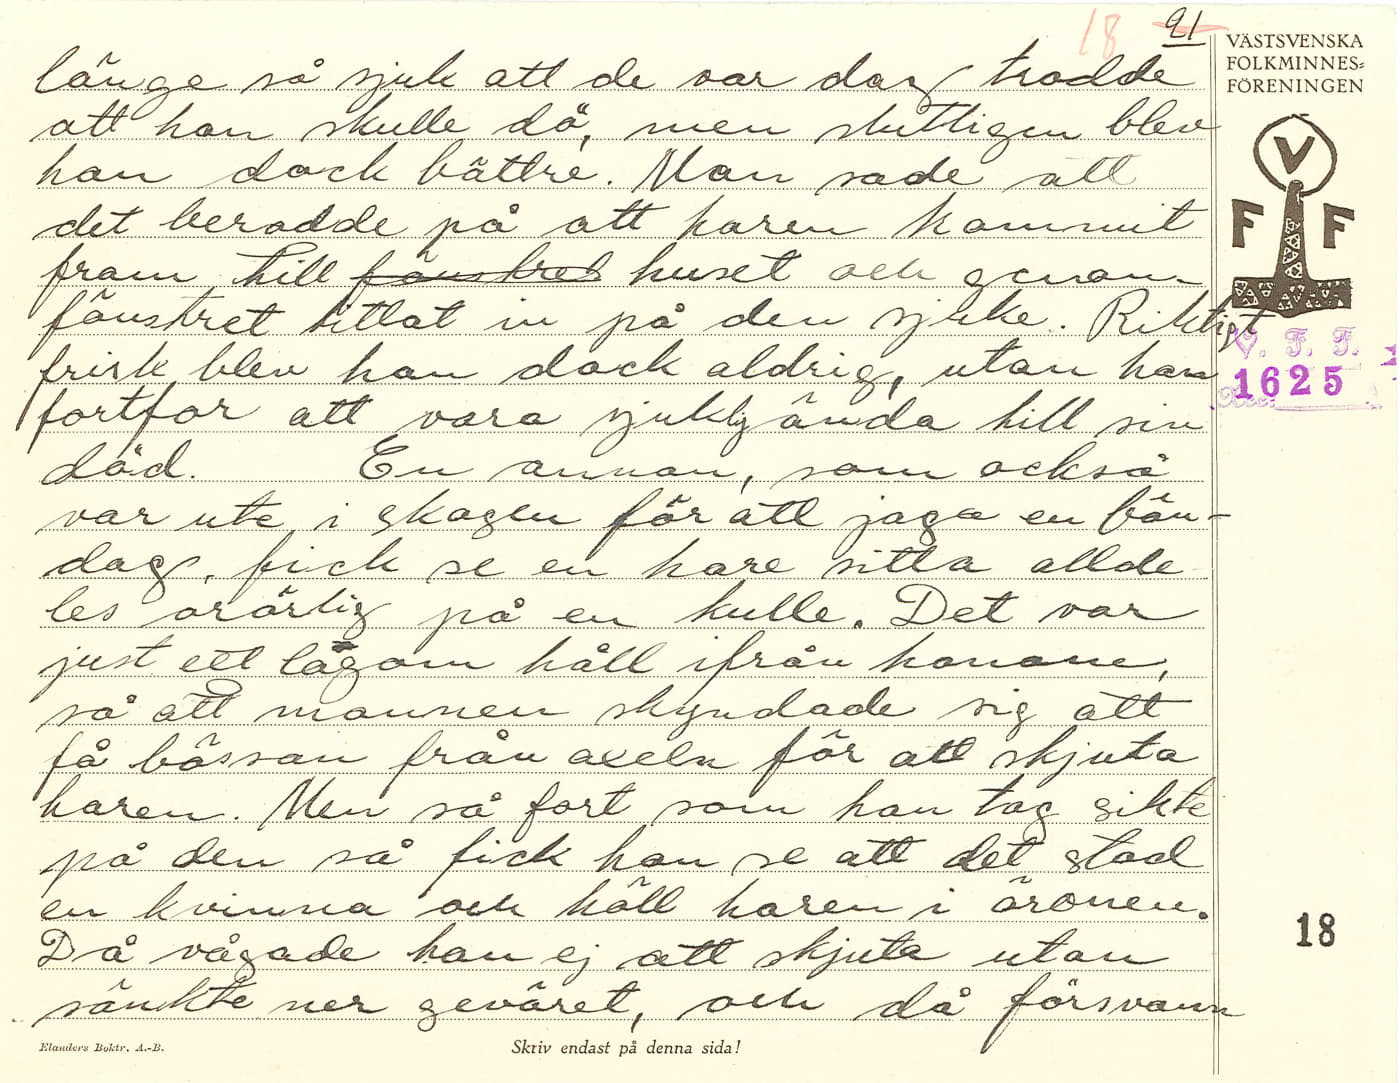 18 21
VÄSTSVENSKA
FOLKMINNES=
FÖRENINGEN
V
F F
V. F. F.
1625
länge så sjuk att de var dag trodde
att han skulle dö, men slutligen blev
han dock bättre. Man sade att
det berodde på att haren kommit
fram till fönstret huset och genom
fönstret tittat in på den sjuke. Riktigt
frisk blev han dock aldrig, utan han
fortfor att vara sjuklig ända till sin
död. En annan, som också
var ute i skogen för att jaga en bön-
dag, fick se en hare sitta allde
les orörlig på en kulle. Det var
just ett lagom håll ifrån honom,
så att mannen skyndade sig att
få bössan från axeln för att skjuta
haren. Men så fort som han tog sikte
på den så fick han se att det stod
en kvinna och höll haren i öronen.
Då vågade han ej att skjuta utan
sänkte ner geväret, och då försvann
18
Elanders Boktr. A.-B.
Skriv endast på denna sida!